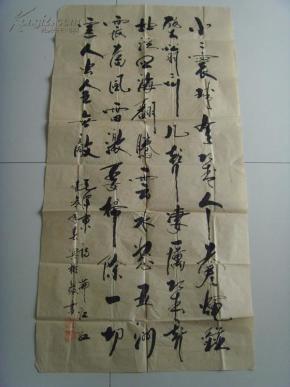 小小寰球有几个苍蝇碰
壁嗡嗡叫几声凄厉几声
抽泣四海翻腾云水怒五洲
震荡风雷激要扫除一切
害人虫全无敌 毛主席词满江红